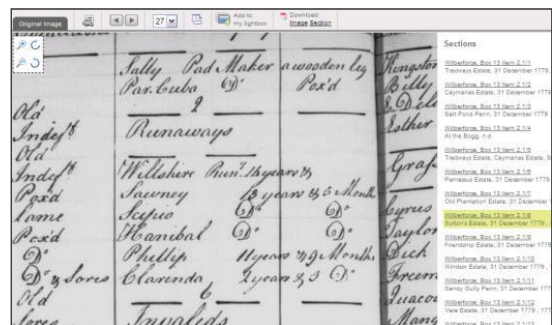 Original Image
27
Add to
my lightbox
Download:
Image Section
Sally Pad Maker a wooden leg
Par. Cuba Do Pox'd
2
Runaways
Willshire Run.
Sawney years & 5 Month
Scipio Do Do
Hanibal Do Do
Phillip 11 years & 9 Months
Clarenda 2 years & 5 Do
6
Invalids
Old
Indeft
Old
Indeft
Pox'd
Lame
Pox'd
Do
Do & Sores
Old
Kingston
Billy
Esther
Cyrus
Taylor
Dick
Sections
Wilberforce, Box 13 Item 2.1/1
Tredways Estate, 31 December 1779
Wilberforce, Box 13 Item 2.1/2
Caymanas Estate, 31 December 1779
Wilberforce, Box 13 Item 2.1/3
Salt Pond Penn, 31 December 1779
Wilberforce, Box 13 Item 2.1/4
At the Bogg, n.d
Wilberforce, Box 13 Item 2.1/5
Tredways Estate, Caymanas Estate, S
Wilberforce, Box 13 Item 2.1/6
Parnassus Estate, 31 December 1779
Wilberforce, Box 13 Item 2.1/7
Old Plantation Estate, 31 December
Wilberforce, Box 13 Item 2.1/8
Sutton's Estate, 31 December 1779
Wilberforce, Box 13 Item 2.1/9
Friendship Estate, 31 December 1779
Wilberforce, Box 13 Item 2.1/10
Windsor Estate, 31 December 1779
Wilberforce, Box 13 Item 2.1/11
Sandy Gully Penn, 31 December 177
Wilberforce, Box 13 Item 2.1/12
Vere Estate, 31 December 1779
Wilberforce, Box 13 Item 2.1/13